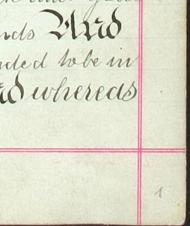 nds And
nded to be in
nd whereas
1